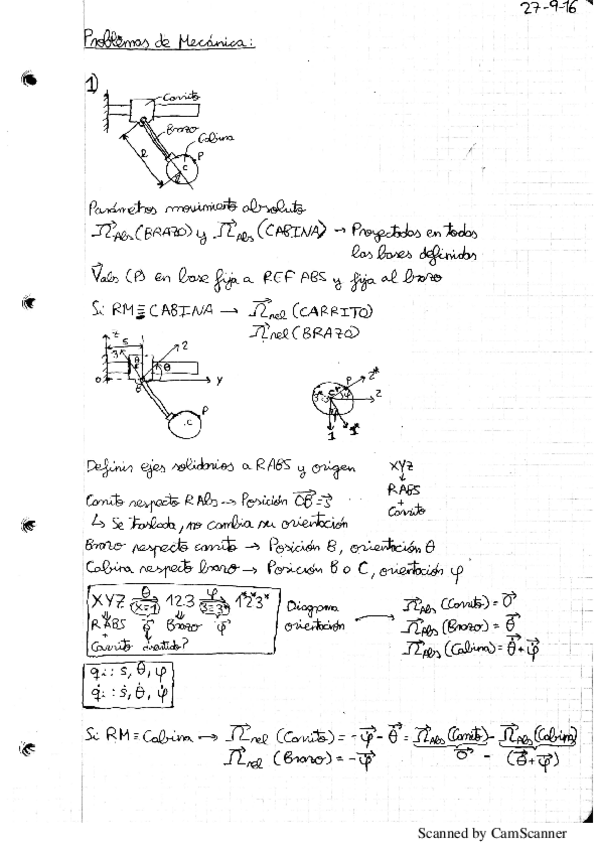 27-9-16
Problemas de Mecánica:
1)
Carrito
Brazo
Cabina
P
C
l
Parámetros movimiento absoluto
Ω⃗Abs (BRAZO) y Ω⃗Abs (CABINA) → Proyectados en todas
las bases definidas
V⃗abs (P) en base fija a REF ABS y fija al brazo
Si RM ≡ CABINA → Ω⃗rel (CARRITO)
Ω⃗rel (BRAZO)
z
s
3
θ
2
θ
O
B
y
P
C
P
2*
2
1
1*
Definir ejes solidarios a RABS y origen
XYZ
↓
RABS
+
Carrito
Carrito respecto RAbs → Posición OB⃗=s⃗
↳ Se traslada, no cambia su orientación
Brazo respecto carrito → Posición B, orientación θ
Cabina respecto brazo → Posición B o C, orientación φ
XYZ θ⃗ (X≡1) 123 φ⃗ (3≡3*) 1*2*3*
RABS Brazo
+
Carrito
Diagrama
orientación
Ω⃗Abs (Carrito) = 0⃗
Ω⃗Abs (Brazo) = θ̇⃗
Ω⃗Abs (Cabina) = θ̇⃗+φ̇⃗
qi: s, θ, φ
q̇i: ṡ, θ̇, φ̇
Si RM ≡ Cabina → Ω⃗rel (Carrito) = -φ̇⃗ - θ̇⃗ = Ω⃗Abs (Carrito) - Ω⃗Abs (Cabina)
Ω⃗rel (Brazo) = -φ̇⃗ 0⃗ - (θ̇⃗+φ̇⃗)
Scanned by CamScanner